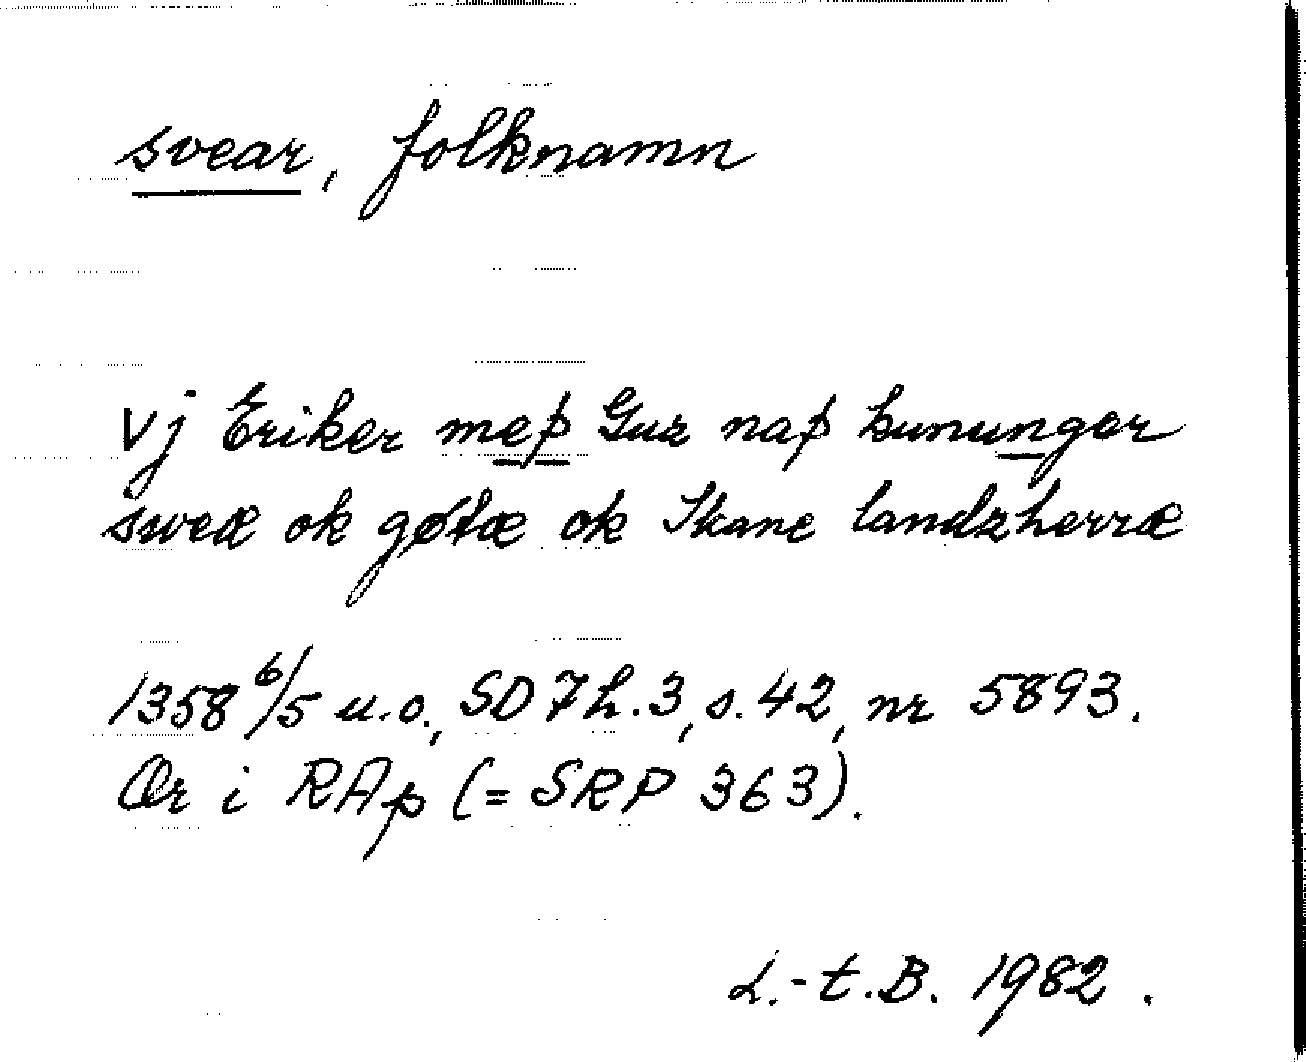 svear, folknamn
Vj Eriker meþ Guz naþ kunungær
sweæ ok gøtæ ok Skane landzherræ
1358 6/5 u.o., SD 7 h. 3, s. 42, nr 5893.
Or i RAp (= SRP 363).
L.-t.B. 1982.